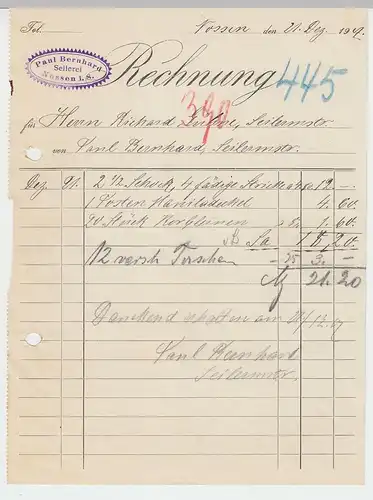 Tel. Nossen den 21. Dez. 1907.
Paul Bernhard
Seilerei
Nossen i.S.
Rechnung 445
390
für Herrn Richard Seilermstr.
von Paul Bernhard, Seilermstr.
Dez. 21. 2 1/2 Schock, 4 fädige Stricke 12 —
1 Posten 4. 60.
20 Stück 1. 60.
Sa 18. 20.
12 versch. 25 3. —
M 21. 20
Dankend erhalten am 21/12. 07
Paul Bernhard
Seilermstr.